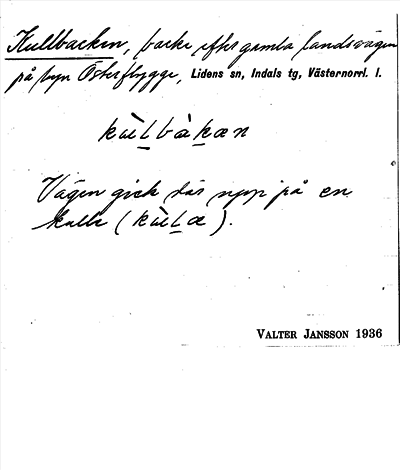 Kullbacken, backe efter gamla landsvägen
på byn Österflygge, Lidens sn, Indals tg, Västernorrl. l.
kùlbàkæn
Vägen gick där upp på en
kulle (kùlæ).
VALTER JANSSON 1936